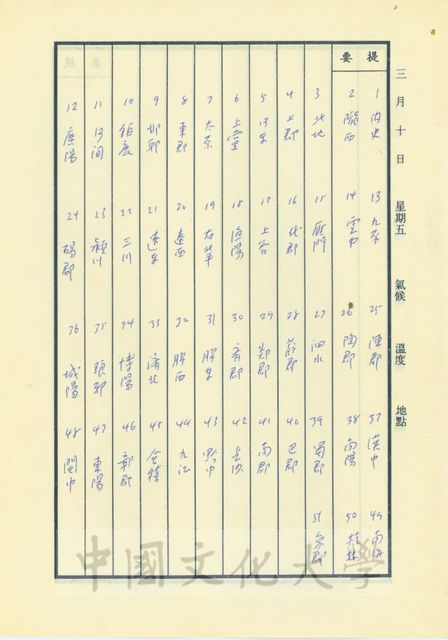 三月十日 星期五 氣候 溫度 地點
提要
1 內史 13 九原 25 陳郡 37 漢中 49 南海
2 隴西 14 雲中 26 陶郡 38 南陽 50 桂林
3 北地 15 雁門 27 泗水 39 蜀郡 51 象郡
4 上郡 16 代郡 28 薛郡 40 巴郡
5 河東 17 上谷 29 郯郡 41 南郡
6 上黨 18 漁陽 30 齊郡 42 長沙
7 太原 19 31 膠東 43 黔中
8 東郡 20 遼西 32 膠西 44 九江
9 邯鄲 21 遼東 33 濟北 45 會稽
10 鉅鹿 22 三川 34 博陽 46 鄣郡
11 河間 23 潁川 35 琅邪 47 東陽
12 廣陽 24 碭郡 36 城陽 48 閩中
中國文化大學